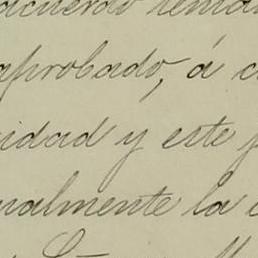 acuerdo
aprobado, á
idad y este
ualmente la